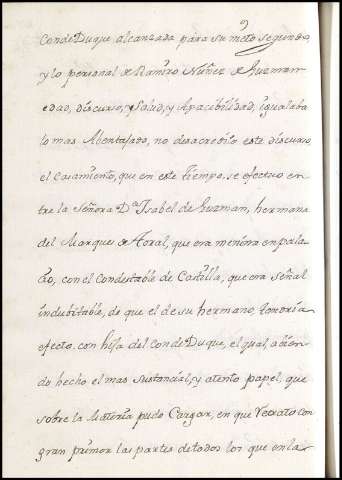 Conde Duque alcanzada para su nieto segundo,
y lo personal de Ramiro Nuñez de Guzman
edad, discurso, y salud, y Apacibilidad, igualaba
lo mas Abentajado, no desacredito este discurso
el Casamiento, que en este tiempo, se efectuo en
tre la Señora Dª Isabel de Guzman, hermana
del Marques de Toral, que era menina en pala
cio, con el Condestable de Castilla, que era señal
indubitable, de que el de su hermano, tomaria
efecto con hija del Conde Duque, el qual, abien
do hecho el mas sustancial, y atento papel, que
sobre la Materia pudo Cargar, en que Retrato con
gran primor las partes de todos los que en la